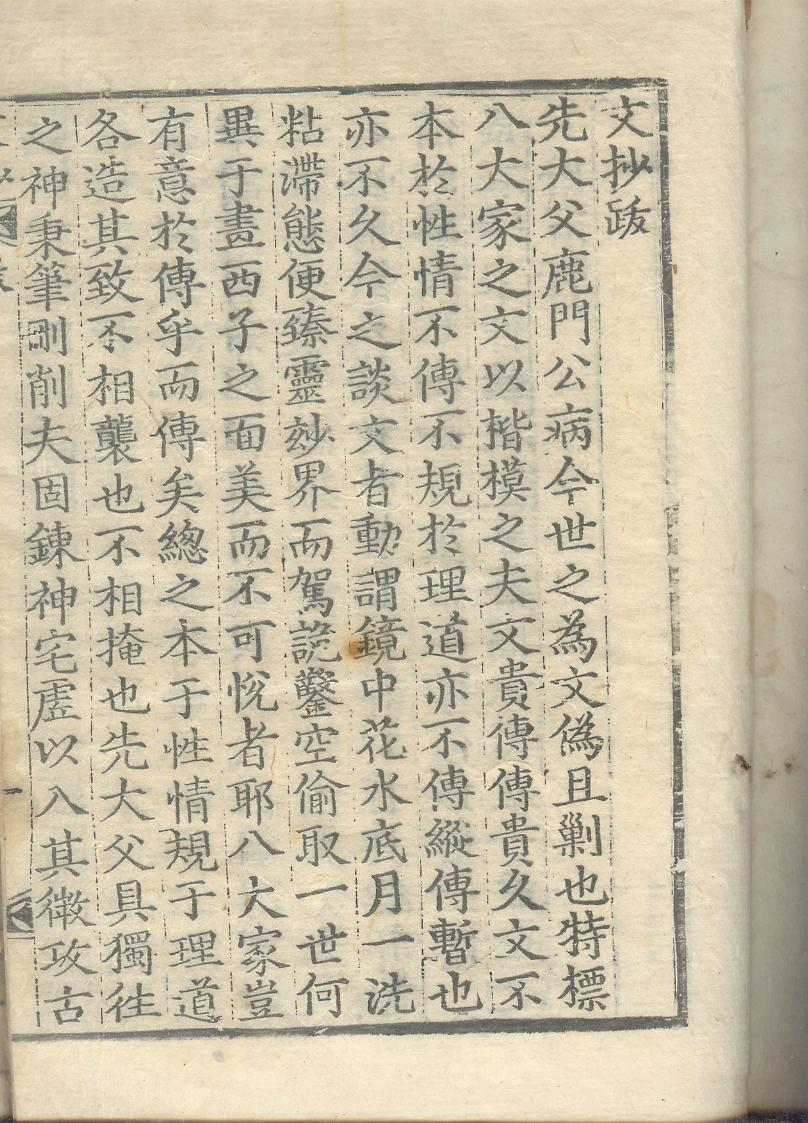 文抄跋
先大父鹿門公病今世之為文偽且剿也特標
八大家之文以楷模之夫文貴傳傳貴久文不
本於性情不傳不規於理道亦不傳縱傳暫也
亦不久今之談文者動謂鏡中花水底月一洗
粘滯態便臻靈玅界而駕詭鑿空偷取一世何
異于畫西子之面美而不可悅者耶八大家豈
有意於傳乎而傳矣總之本于性情規于理道
各造其致不相襲也不相掩也先大父具獨往
之神秉筆刪削夫固鍊神宅虛以入其微攻古